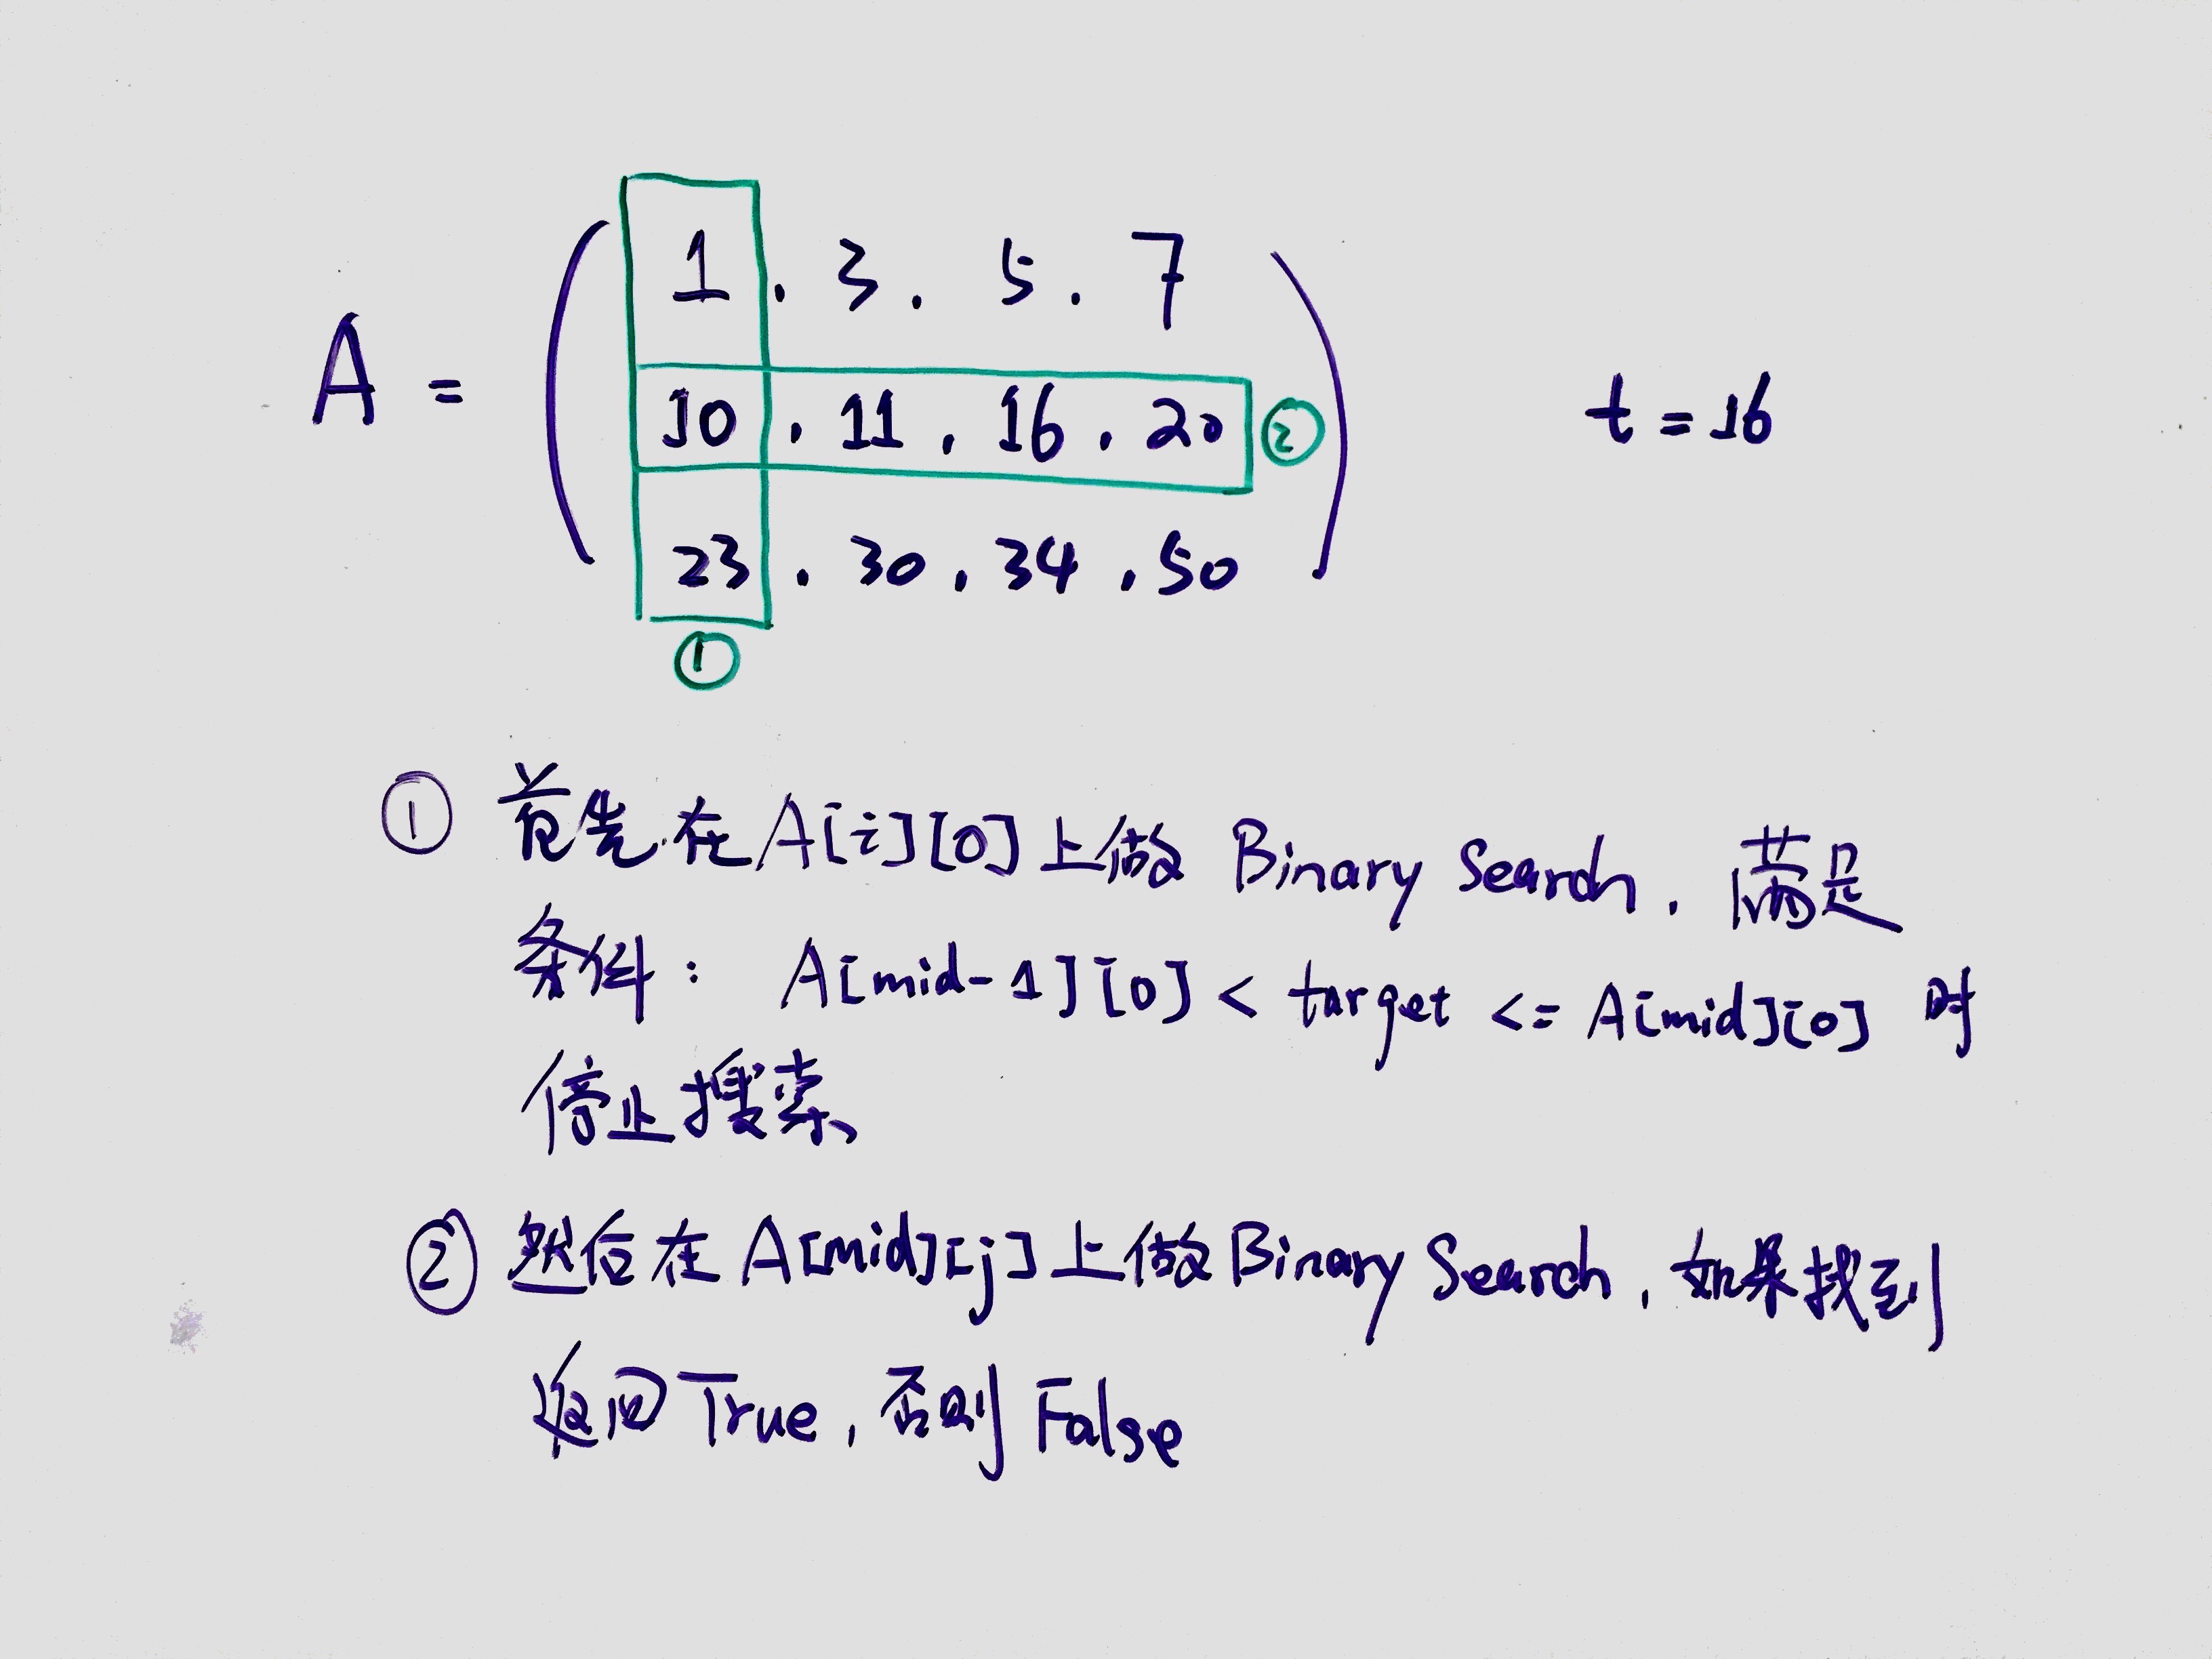 1 . 3 . 5 . 7
A = 10 . 11 . 16 . 20 ② t = 16
23 . 30 . 34 . 50
①
① 首先在 A[i][0] 上做 Binary Search , 满足
条件: A[mid-1][0] < target <= A[mid][0] 时
停止搜索
② 然后在 A[mid][j] 上做 Binary Search , 如果找到
返回 True , 否则 False